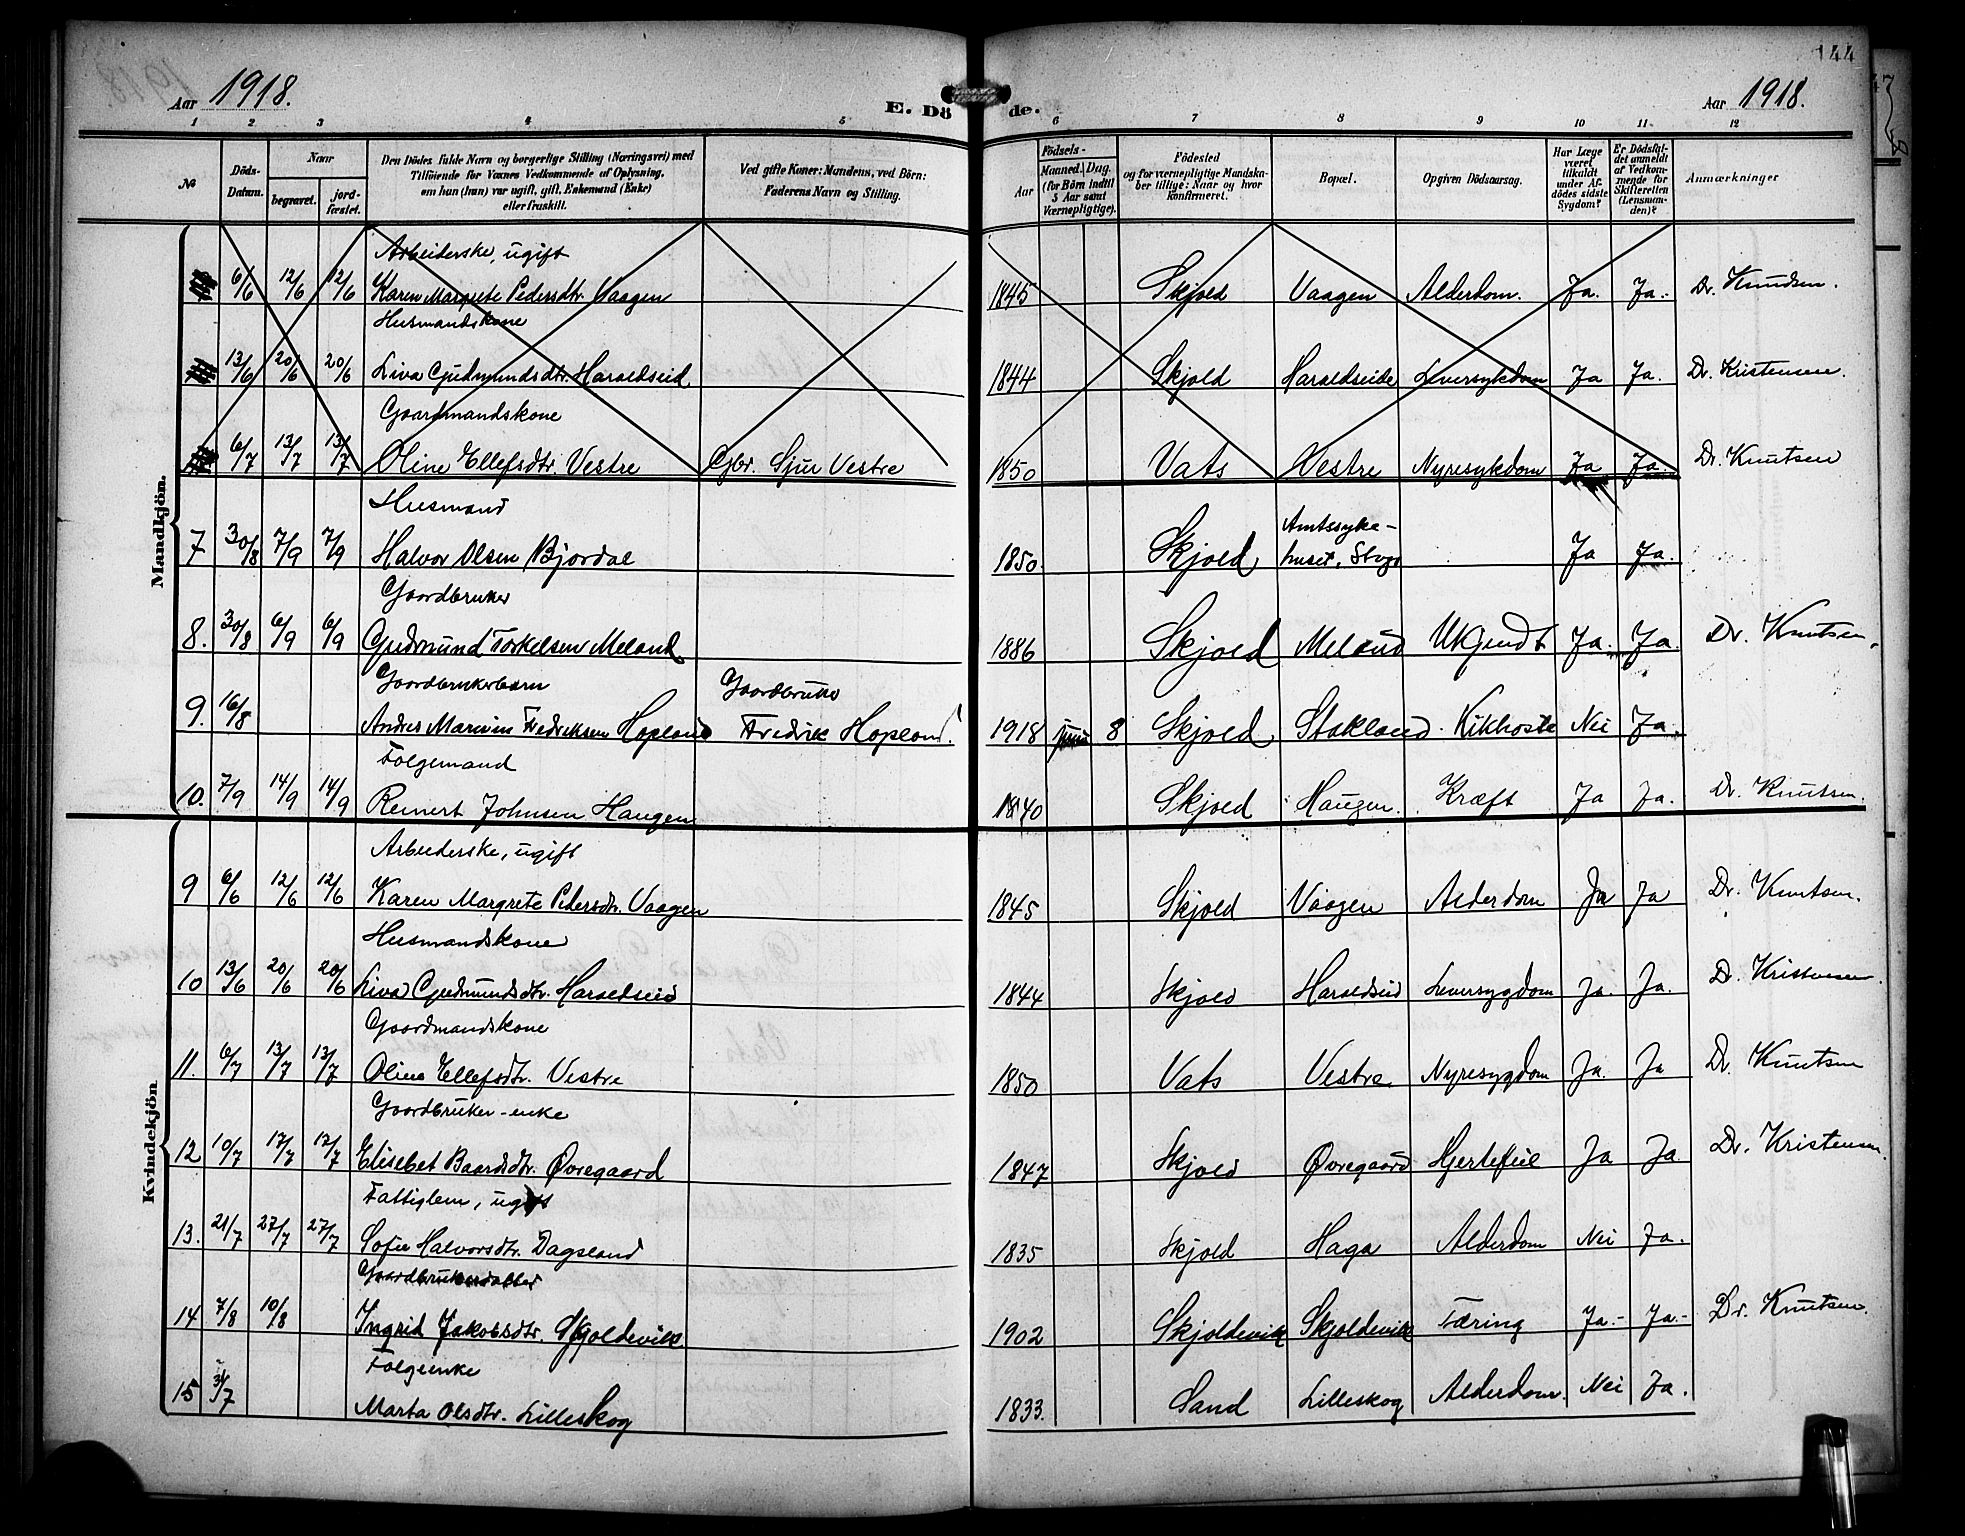 144
Aar 1918.
E. Dö de.
Aar 1918.
1 2 3 4 5 6 7 8 9 10 11 12
№
Döds-Datum.
Naar
begravet.
jordfæstet.
Den Dödes fulde Navn og borgerlige Stilling (Næringsvei) med
Tilföiende for Voxnes Vedkommende af Oplysning,
om han (hun) var ugift, gift, Enkemand (Enke)
eller fraskilt.
Ved gifte Koner: Mandens, ved Börn:
Faderens Navn og Stilling.
Födsels-
Aar
Maaned. Dag.
(for Börn indtil
5 Aar samt
Værnepligtige).
Födested
og for værnepligtige Mandska-
ber tillige: Naar og hvor
konfirmeret.
Bopæl.
Opgiven Dödsaarsag.
Har Læge
været
tilkaldt
under Af-
dödes sidste
Sygdom?
Er Dödsfal-
det anmeldt
af Vedkom-
mende for
Skifteretten
(Lensman-
den)?
Anmærkninger
Mandkjön.
Arbeiderske, ugift
6/6 12/6 12/6 Karen Margrete Pedersdtr. Vaagen 1845 Skjold Vaagen Alderdom. Ja. Ja. Dr. Knudsen.
Husmandskone
13/6 20/6 20/6 Liva Gudmundsdtr. Haroldseid 1844 Skjold Haroldseide Leversykdom Ja Ja. Dr. Kristensen.
Gaardmandskone
6/7 13/7 13/7 Oline Ellefsdtr. Vestre Gbr. Sjur Vestre 1850 Vats Vestre Nyresykdom Ja Ja. Dr. Knutsen
Husmand
7 30/8 7/9 7/9 Halvor Olsen Bjordal 1850. Skjold Amtssyke-
huset, Stvgr Ja Ja.
Gaardbruker
8. 30/8 6/9 6/9 Gudmund Torkelsen Meland 1886 Skjold Meland Ukjendt Ja. Ja. Dr. Knutsen.
Gaardbrukerbarn Gaardbruker
9. 16/8 Andres Marius Fredriksen Hopland Fredrik Hopland. 1918 juni 8 Skjold Stakland Kikhoste Nei Ja.
Folgemand
10. 7/9 14/9 14/9 Reinert Johnsen Haugen 1840 Skjold Haugen. Kræft Ja Ja. Dr. Knutsen.
Kvindekjön
Arbeiderske, ugift
9 6/6 12/6 12/6 Karen Margrete Pedersdtr. Vaagen 1845 Skjold Vaagen Alderdom Ja Ja Dr. Knutsen.
Husmandskone
10 13/6 20/6 20/6 Liva Gudmundsdtr. Haroldseid 1844 Skjold Haroldseid Leversygdom Ja. Ja. Dr. Kristensen
Gaardmandskone
11. 6/7 13/7 13/7 Oline Ellefsdtr. Vestre 1850 Vats Vestre Nyresygdom Ja. Ja Dr. Knutsen
Gaardbruker-enke
12 10/7 17/7 17/7 Elisebet Baardsdtr. Øvregaard 1847 Skjold Øvregaard Hjertefeil Ja Ja Dr. Kristensen
Fattiglem, ugift
13. 21/7 27/7 27/7 Sofie Halvorsdtr. Dagsland 1835 Skjold Haga Alderdom Nei Ja.
Gaardbrukerdatter
14 7/8 10/8 Ingrid Jakobsdtr. Skjoldevik 1902 Skjoldevik Skjoldevik Tæring Ja.- Ja.- Dr. Knutsen.
Folgeenke
15 31/7 Marta Olsdtr. Lilleskog 1833. Sand Lilleskog Alderdom. Nei Ja.